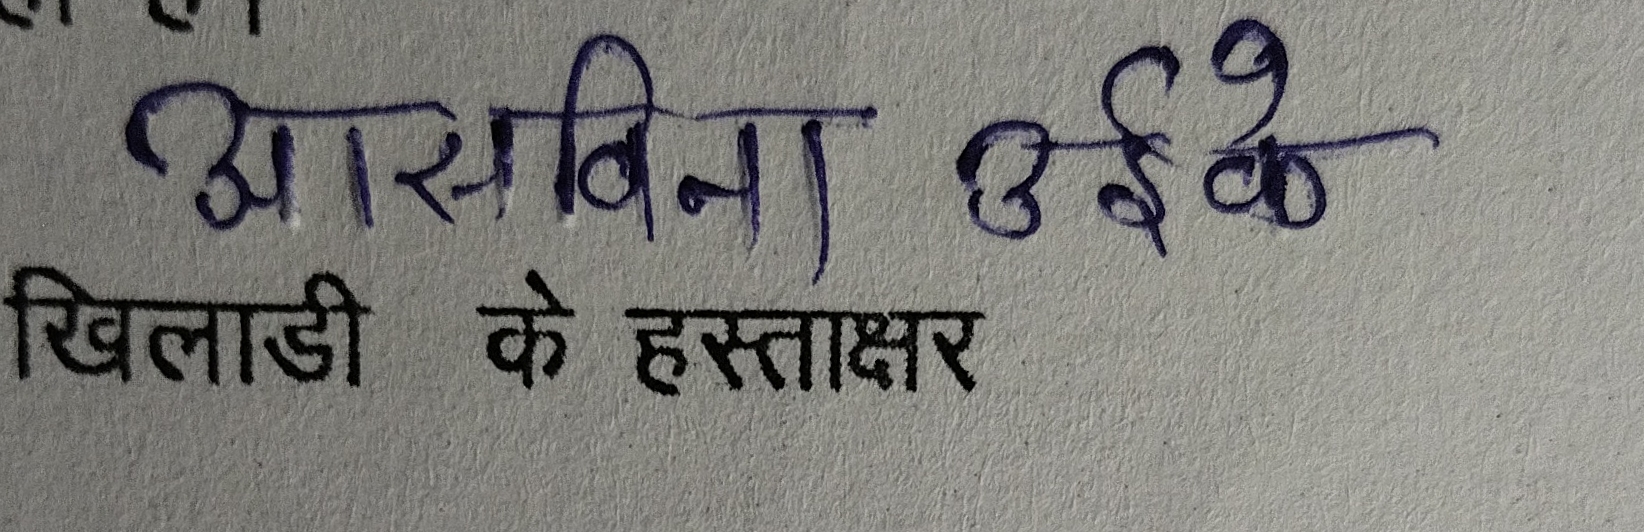 आसविना उईके
खिलाडी के हस्ताक्षर